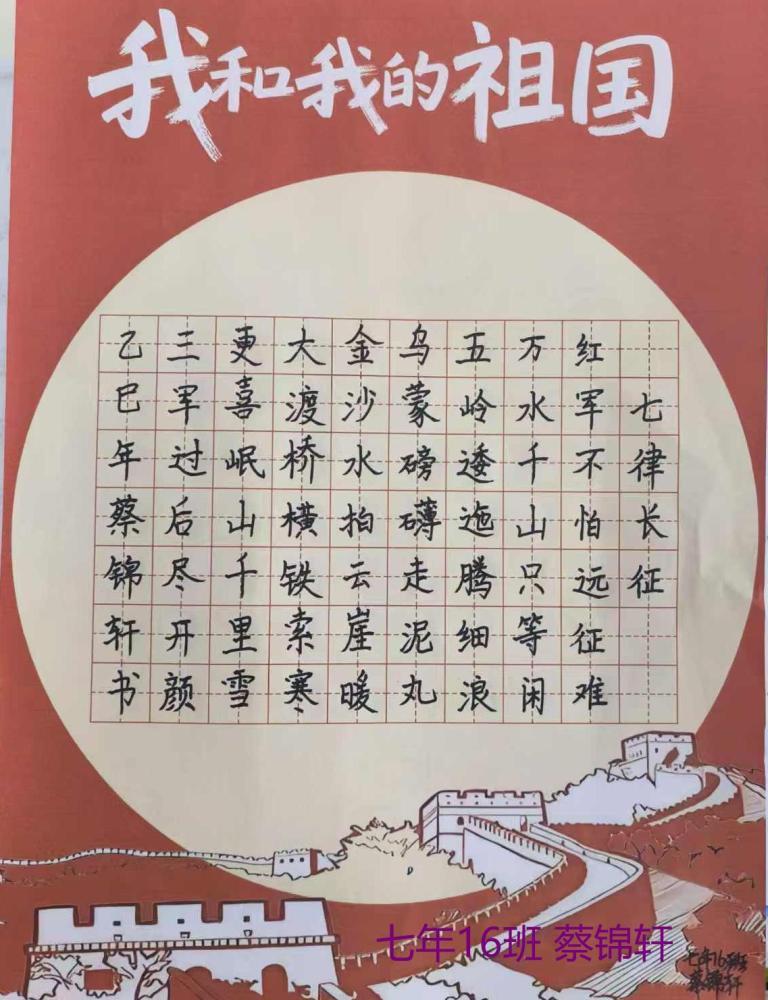 我和我的祖国
七律长征
红军不怕远征难
万水千山只等闲
五岭逶迤腾细浪
乌蒙磅礴走泥丸
金沙水拍云崖暖
大渡桥横铁索寒
更喜岷山千里雪
三军过后尽开颜
乙巳年蔡锦轩书
七年16班 蔡锦轩
七年16班
蔡锦轩